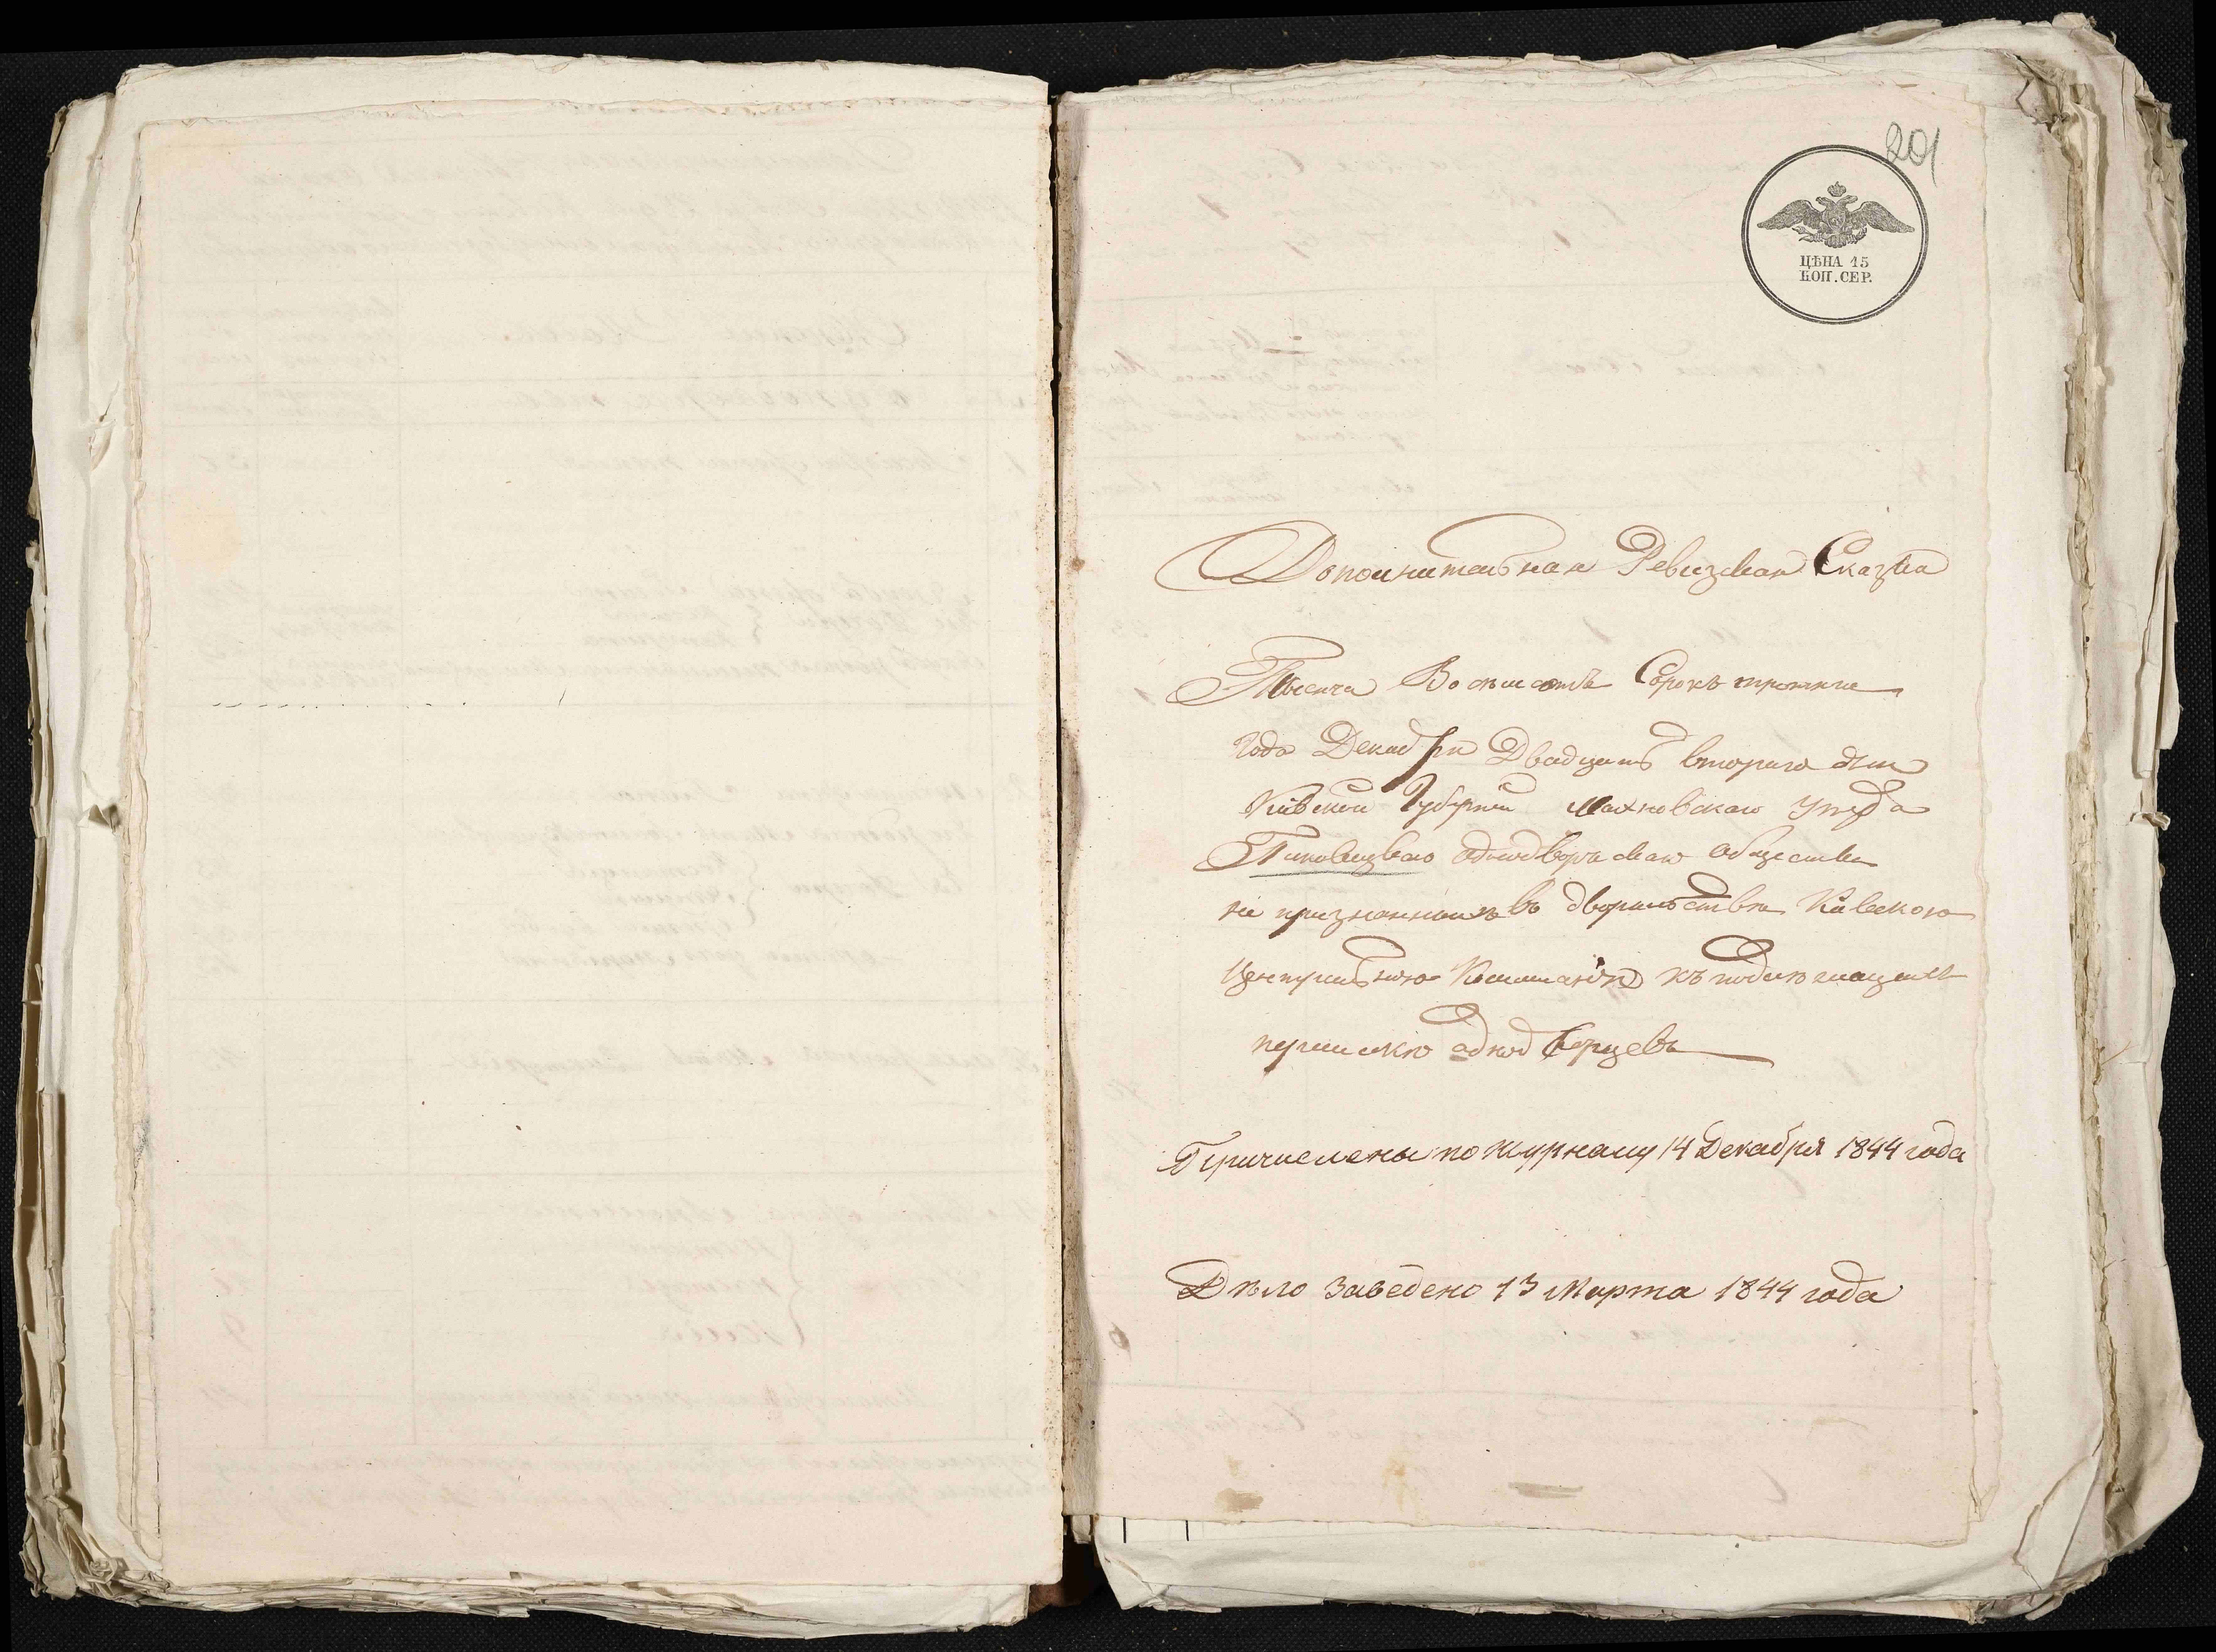 201
ЦѢНА 15
КОП. СЕР.
Дополнительная Ревизская Сказка
Тысяча Восемсотъ Сорокъ третьяго
года Декабря Двадцать втораго дня
Кіевской Губерніи Махновскаго уѣзда
однодворческаго общества
не признанныхъ въ дворянствѣ Кіевскою
Центральною Коммисіею къ подлежащимъ
однодворцевъ
Причислены по журналу 14 Декабря 1844 года
Дѣло заведено 13 Марта 1844 года